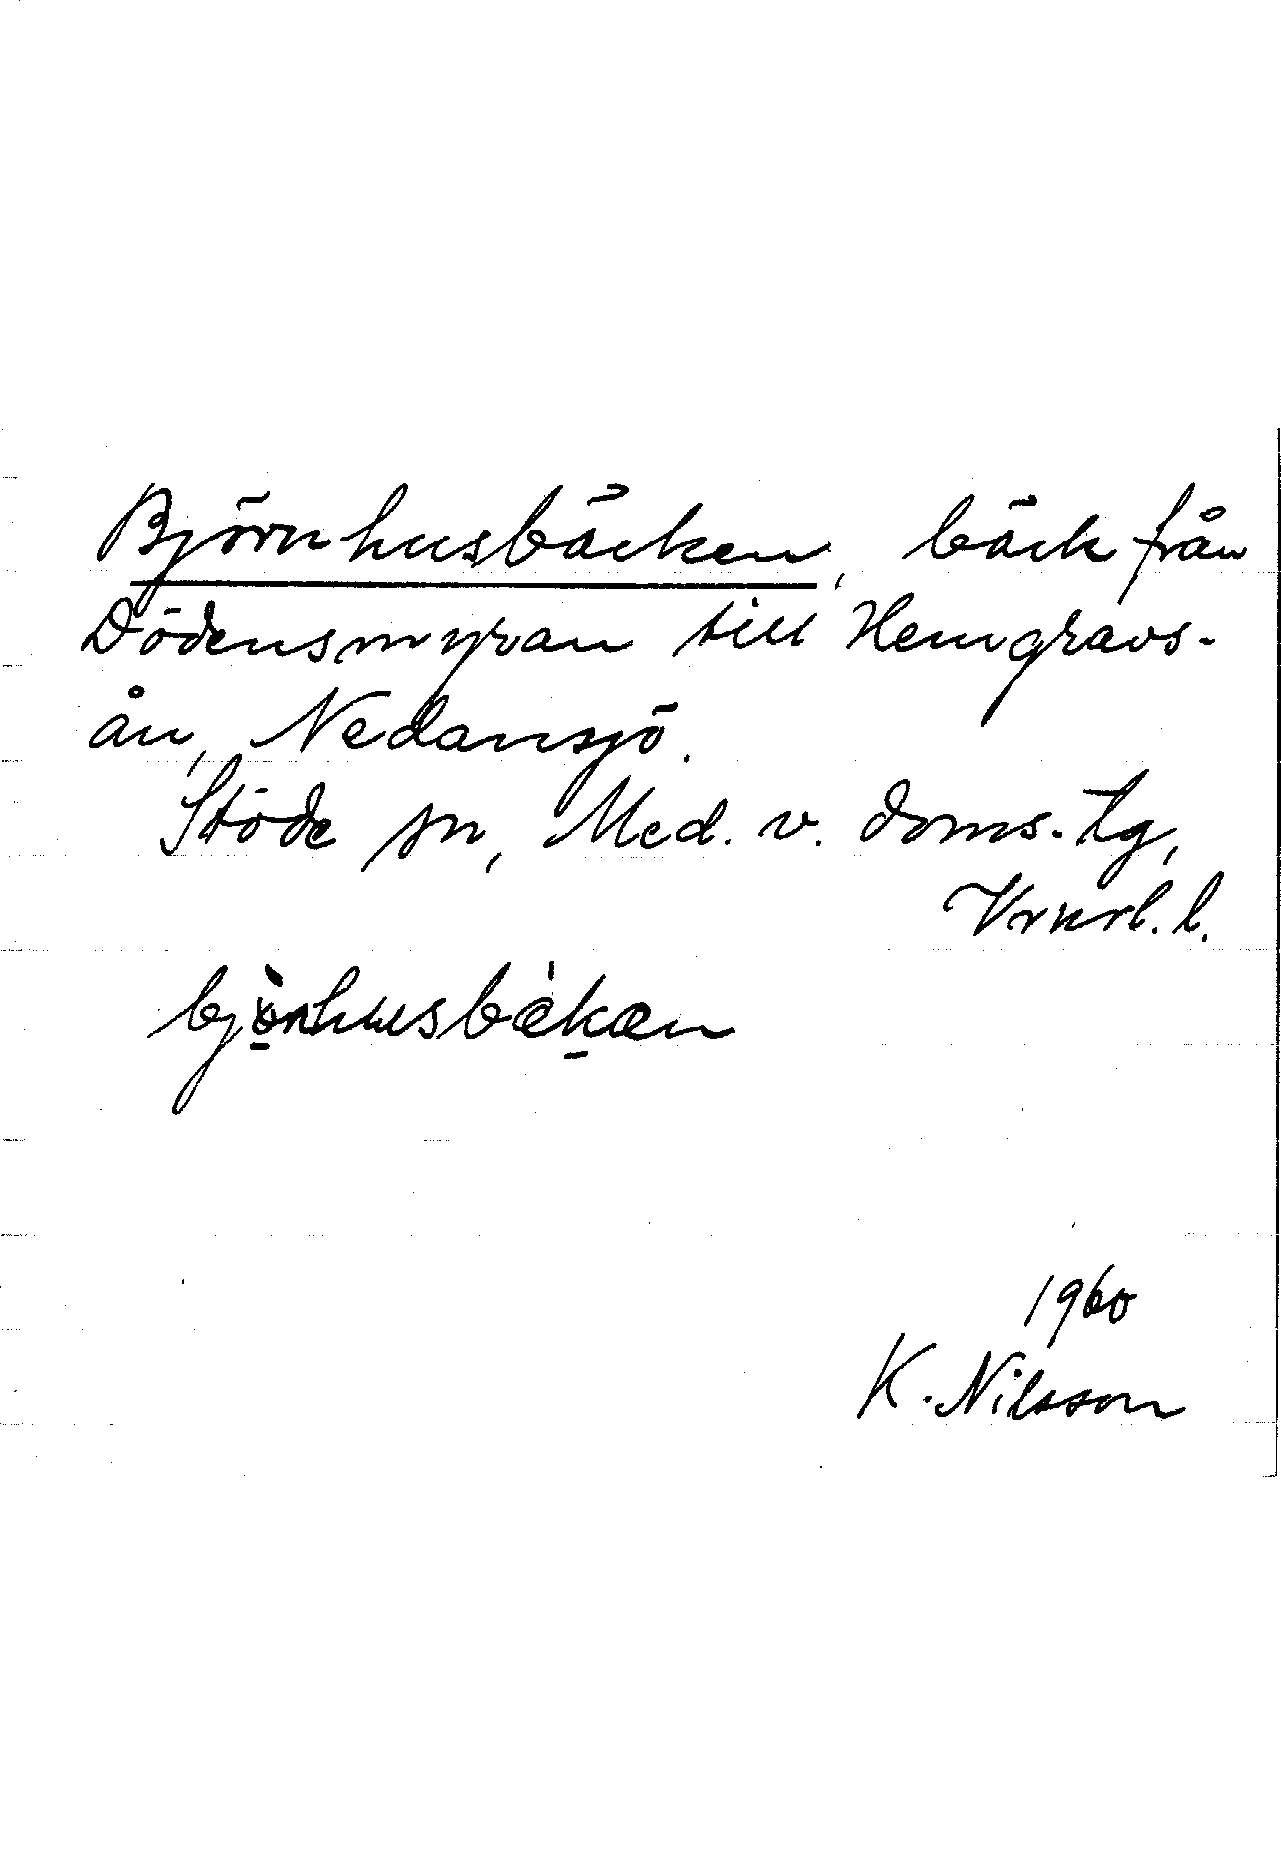 Björnhusbäcken, bäck från
Dödensmyran till Hemgravs-
ån, Nedansjö.
Stöde sn, Med. v. doms. tg,
Vrnrl. l.
bjö̀nhusbækæn
1960
K. Nilsson